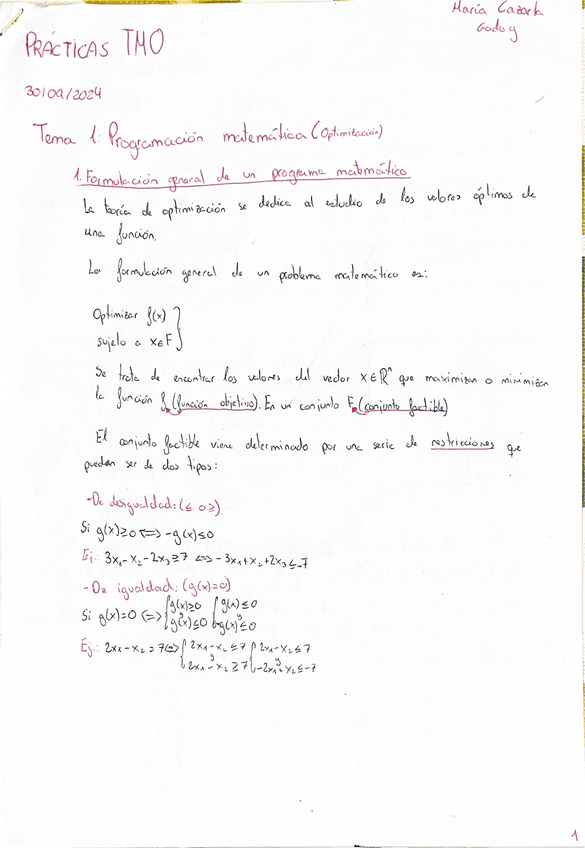 María Cazorla
Godoy
PRÁCTICAS TMO
30/09/2024
Tema 1: Programación matemática (Optimización)
1. Formulación general de un programa matemático
La teoría de optimización se dedica al estudio de los valores óptimos de
una función.
La formulación general de un problema matemático es:
Optimizar f(x)
sujeto a x∈F
Se trata de encontrar los valores del vector x∈ℝⁿ que maximizan o minimizan
la función f (función objetivo). En un conjunto F (conjunto factible)
El conjunto factible viene determinado por una serie de restricciones que
pueden ser de dos tipos:
- De desigualdad: (≤ o ≥)
Si g(x)≥0 ⟺ -g(x)≤0
Ej: 3x₁-x₂-2x₃≥7 ⟺ -3x₁+x₂+2x₃≤-7
- De igualdad: (g(x)=0)
Si g(x)=0 ⟺ { g(x)≥0 y g(x)≤0 { g(x)≤0 y -g(x)≤0
Ej: 2x₁-x₂=7 ⟺ { 2x₁-x₂≤7 y 2x₁-x₂≥7 { 2x₁-x₂≤7 y -2x₁+x₂≤-7
1